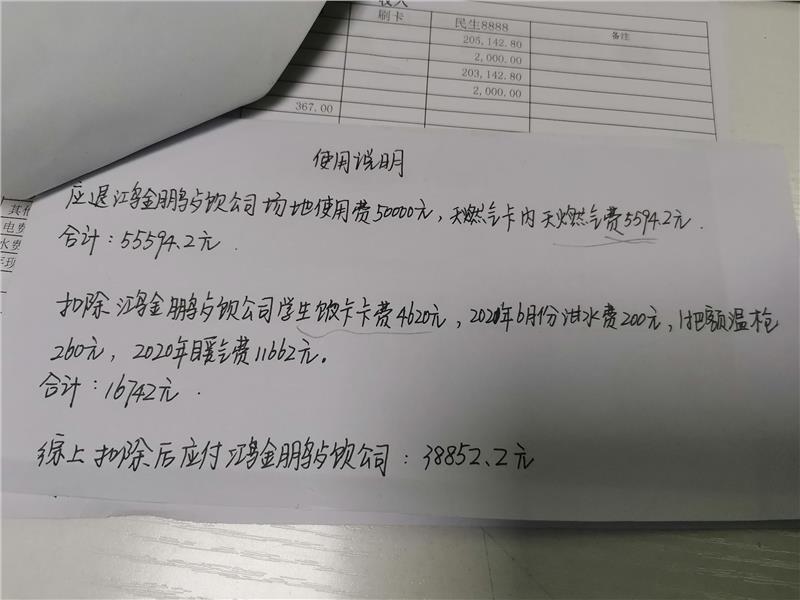 收入
刷卡 民生8888 备注
205,142.80
2,000.00
203,142.80
2,000.00
367.00
使用说明
应退鸿金鹏餐饮公司场地使用费50000元，天燃气卡内天燃气费5594.2元.
合计：55594.2元.
扣除鸿金鹏餐饮公司学生饭卡卡费4620元，2020年6月份泔水费200元，1把额温枪
260元，2020年暖气费11662元。
合计：16742元.
综上扣除后应付鸿金鹏餐饮公司：38852.2元
电费
水费